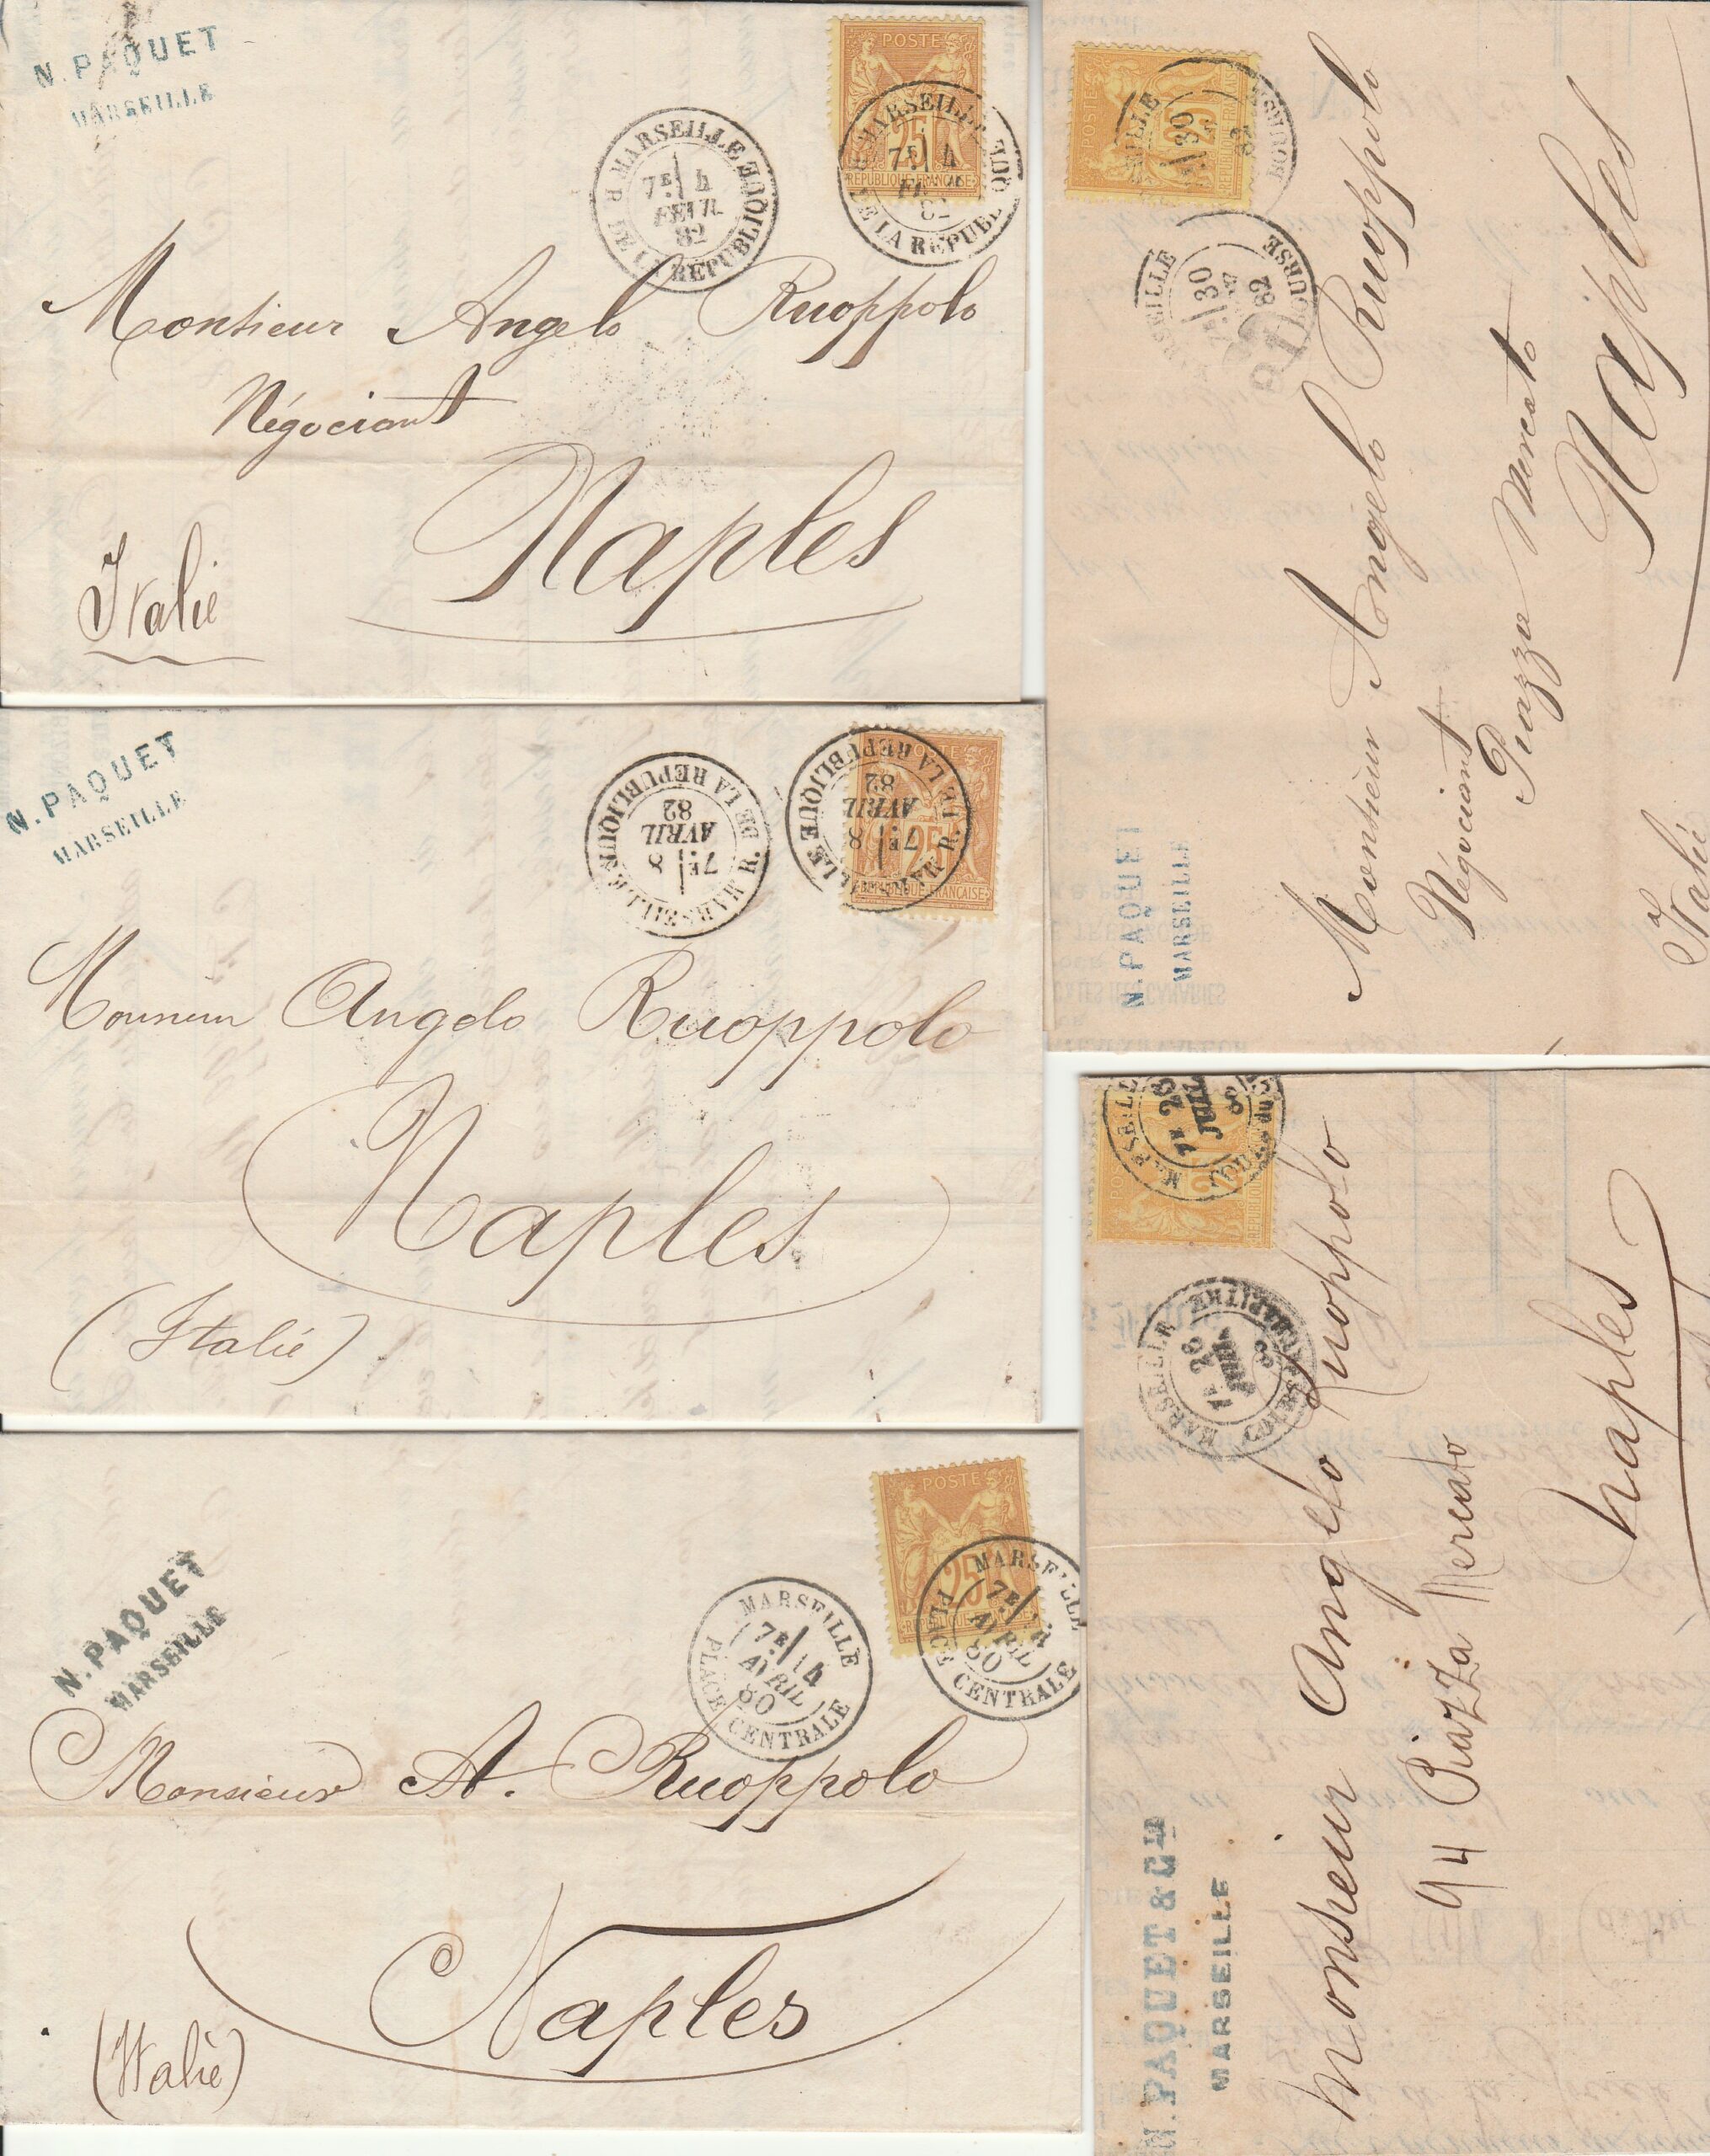 N. PAQUET
MARSEILLE
POSTE
25
REPUBLIQUE FRANÇAISE
MARSEILLE R. DE LA REPUBLIQUE
7E 4
FEVR
82
MARSEILLE
7E 4
82
DE LA REPUBLIQUE
Monsieur Angelo Ruoppolo
Négociant
Naples
Italie
N. PAQUET
MARSEILLE
POSTE
25
REPUBLIQUE FRANÇAISE
MARSEILLE R. DE LA REPUBLIQUE
7E 8
AVRIL
82
MARSEILLE R. DE LA REPUBLIQUE
7E 8
AVRIL
82
Monsieur Angelo Ruoppolo
Naples
(Italie)
N. PAQUET
MARSEILLE
POSTE
25
MARSEILLE
7E 14
AVRIL
80
PLACE CENTRALE
MARSEILLE
7E
AVRIL
80
PLACE CENTRALE
Monsieur A. Ruoppolo
Naples
(Italie)
N. PAQUET
MARSEILLE
POSTE
25
30
82
BOURSE
MARSEILLE
30
82
BOURSE
PD
Monsieur Angelo Ruoppolo
Négociant
Piazza Mercato
Naples
Italie
N. PAQUET & CIE
MARSEILLE
25
MARSEILLE
7E 28
JUIL
MARSEILLE
COURS DU CHAPITRE
28
Monsieur Angelo Ruoppolo
94 Piazza Mercato
Naples